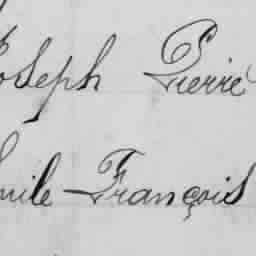 Joseph Pierre
Emile François